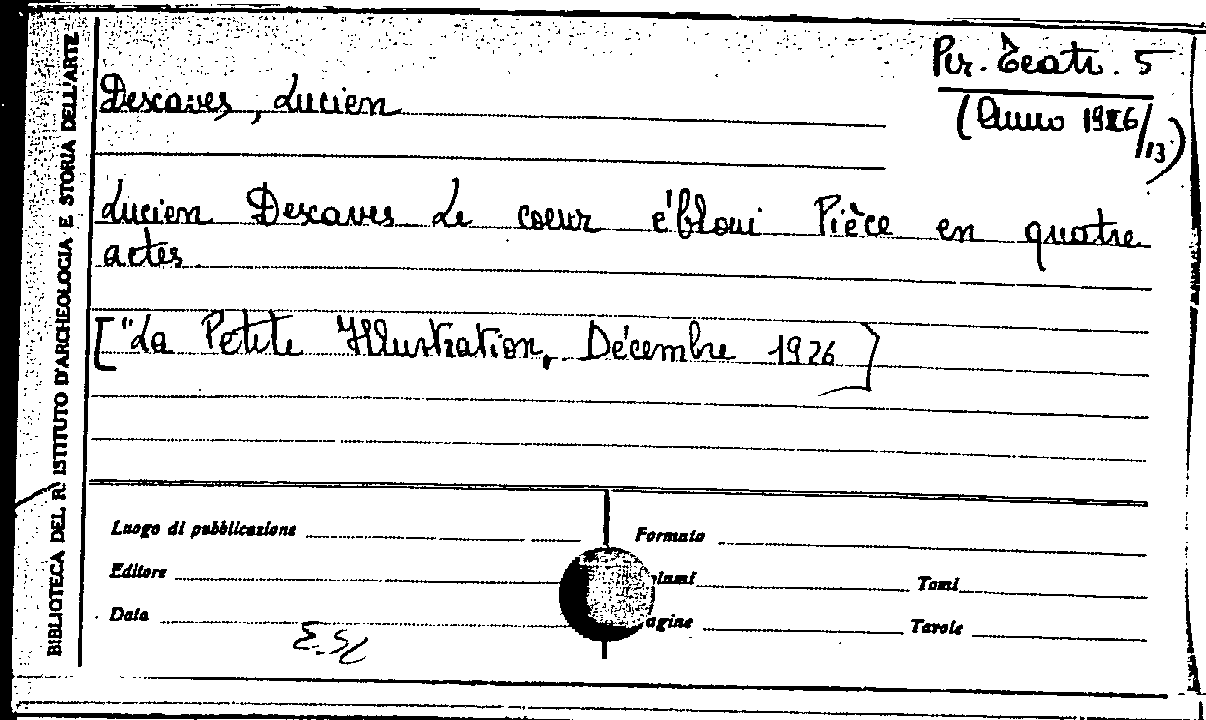 BIBLIOTECA DEL R. ISTITUTO D'ARCHEOLOGIA E STORIA DELL'ARTE
Per. Teatr. 5
(Anno 1926/13)
Descaves, Lucien
Lucien Descaves Le coeur ébloui Pièce en quatre
actes.
["La Petite Illustration, Décembre 1926]
Luogo di pubblicazione
Formato
Editore
Tomi
Data
Tavole